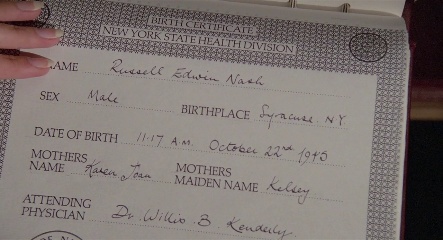 BIRTH CERTIFICATE
NEW YORK STATE HEALTH DIVISION
NAME Russell Edwin Nash
SEX Male BIRTHPLACE Syracuse NY
DATE OF BIRTH 11:17 A.M. October 22nd 1945
MOTHERS NAME Karen Joan MOTHERS MAIDEN NAME Kelsey
ATTENDING PHYSICIAN Dr. Willis B. Kenderly